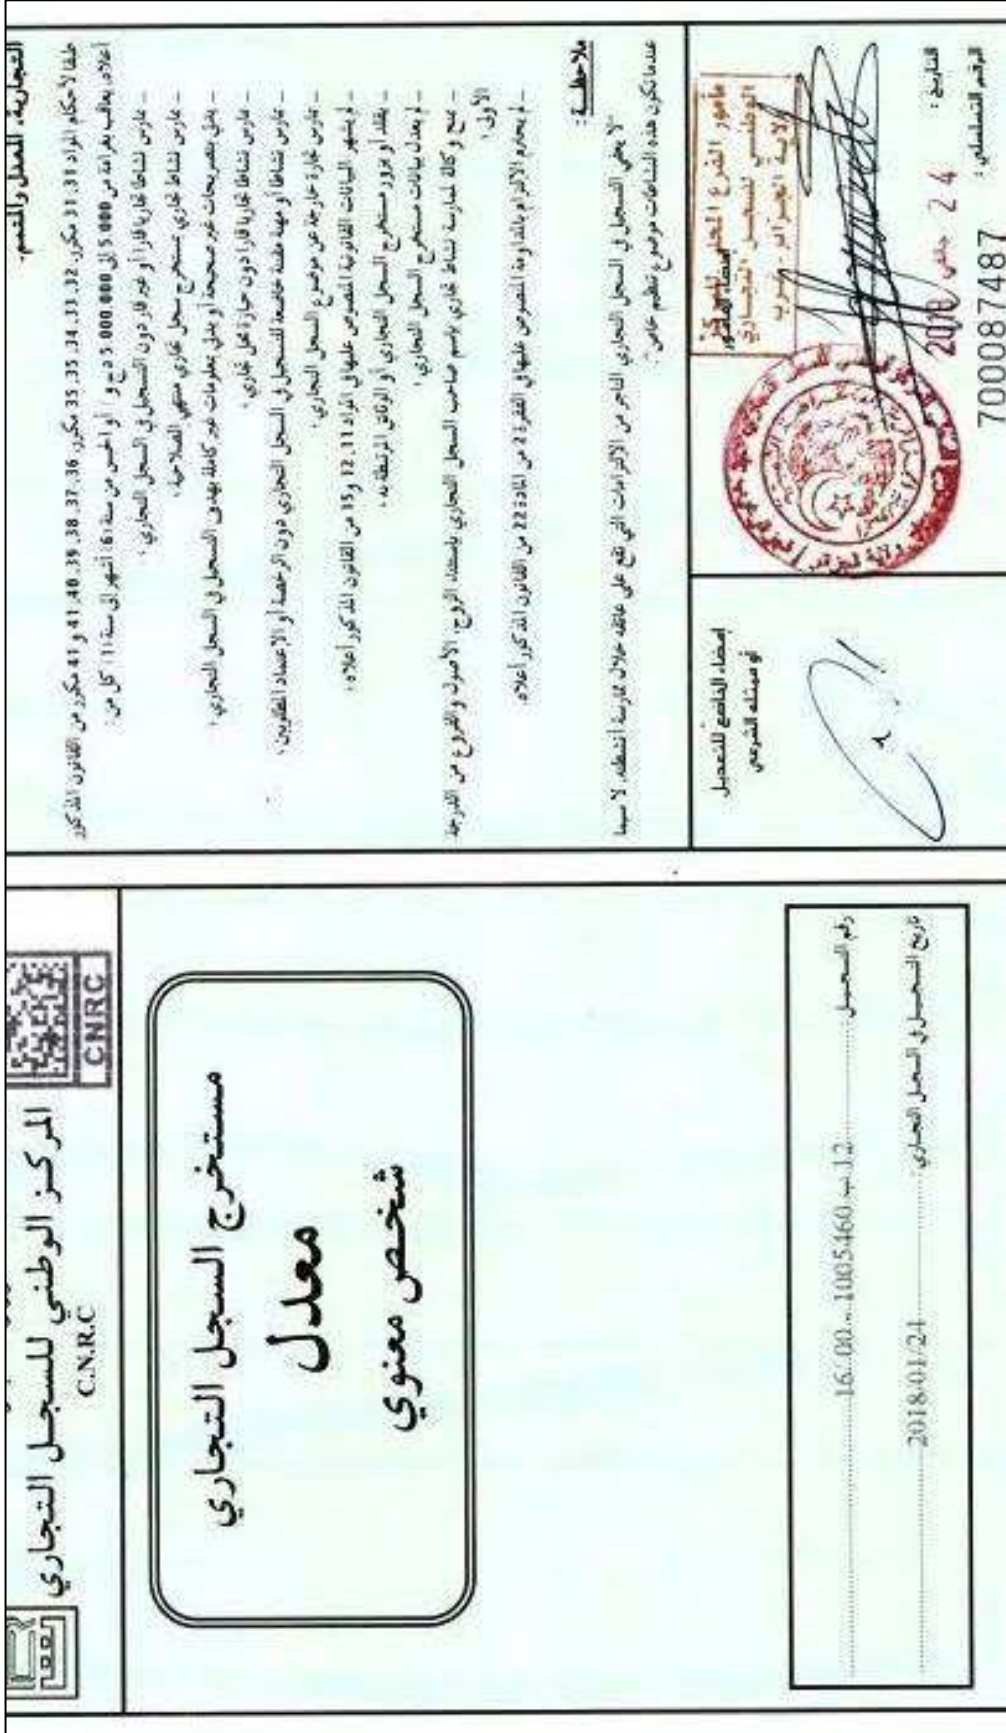 المركز الوطني للسجل التجاري
C.N.R.C
CNRC
مستخرج السجل التجاري
معدل
شخص معنوي
رقم التسجيل 16/00 - 1005460 ب 12
تاريخ التسجيل في السجل التجاري 2018/01/24
التجارية، المعدل والمتمم.
طبقا لأحكام المواد 31، 31 مكرر، 32، 33، 34، 35، 35 مكرر، 36، 37، 38، 39، 40، 41 و 41 مكرر من القانون المذكور
أعلاه، يعاقب بغرامة من 5.000 إلى 5.000.000 دج و / أو الحبس من ستة (6) أشهر إلى سنة (1) كل من :
– مارس نشاطا تجاريا قارا أو غير قار دون التسجيل في السجل التجاري ،
– مارس نشاط تجاري بمستخرج سجل تجاري منتهي الصلاحية ،
– يدلي بتصريحات غير صحيحة أو يدلي بمعلومات غير كاملة بهدف التسجيل في السجل التجاري ،
– مارس نشاطا تجاريا قارا دون حيازة محل تجاري ،
– مارس نشاطا أو مهنة مقننة خاضعة للتسجيل في السجل التجاري دون الرخصة أو الإعتماد المطلوبين ،
– مارس تجارة خارجة عن موضوع السجل التجاري ،
– لم يشهر البيانات القانونية المنصوص عليها في المواد 11، 12 و 15 من القانون المذكور أعلاه ،
– يقلد أو يزور مستخرج السجل التجاري أو الوثائق المرتبطة به ،
– لم يعدل بيانات مستخرج السجل التجاري ،
– منح وكالة لممارسة نشاط تجاري باسم صاحب السجل التجاري باستثناء الزوج، الأصول والفروع من الدرجة
الأولى ،
– لم يحترم الالتزام بالمداومة المنصوص عليها في الفقرة 2 من المادة 22 من القانون المذكور أعلاه.
ملاحظة :
"لا يعفي التسجيل في السجل التجاري التاجر من الالتزامات التي تقع على عاتقه خلال ممارسة أنشطته، لا سيما
عندما تكون هذه النشاطات موضوع تنظيم خاص".
إمضاء الخاضع للتعديل
أو ممثله الشرعي
إمضاء المأمور
مأمور الفرع المحلي للمركز
الوطني للسجل التجاري
لولاية الجزائر - غرب
التاريخ :
24 جانفي 2018
الرقم التسلسلي :
700087487